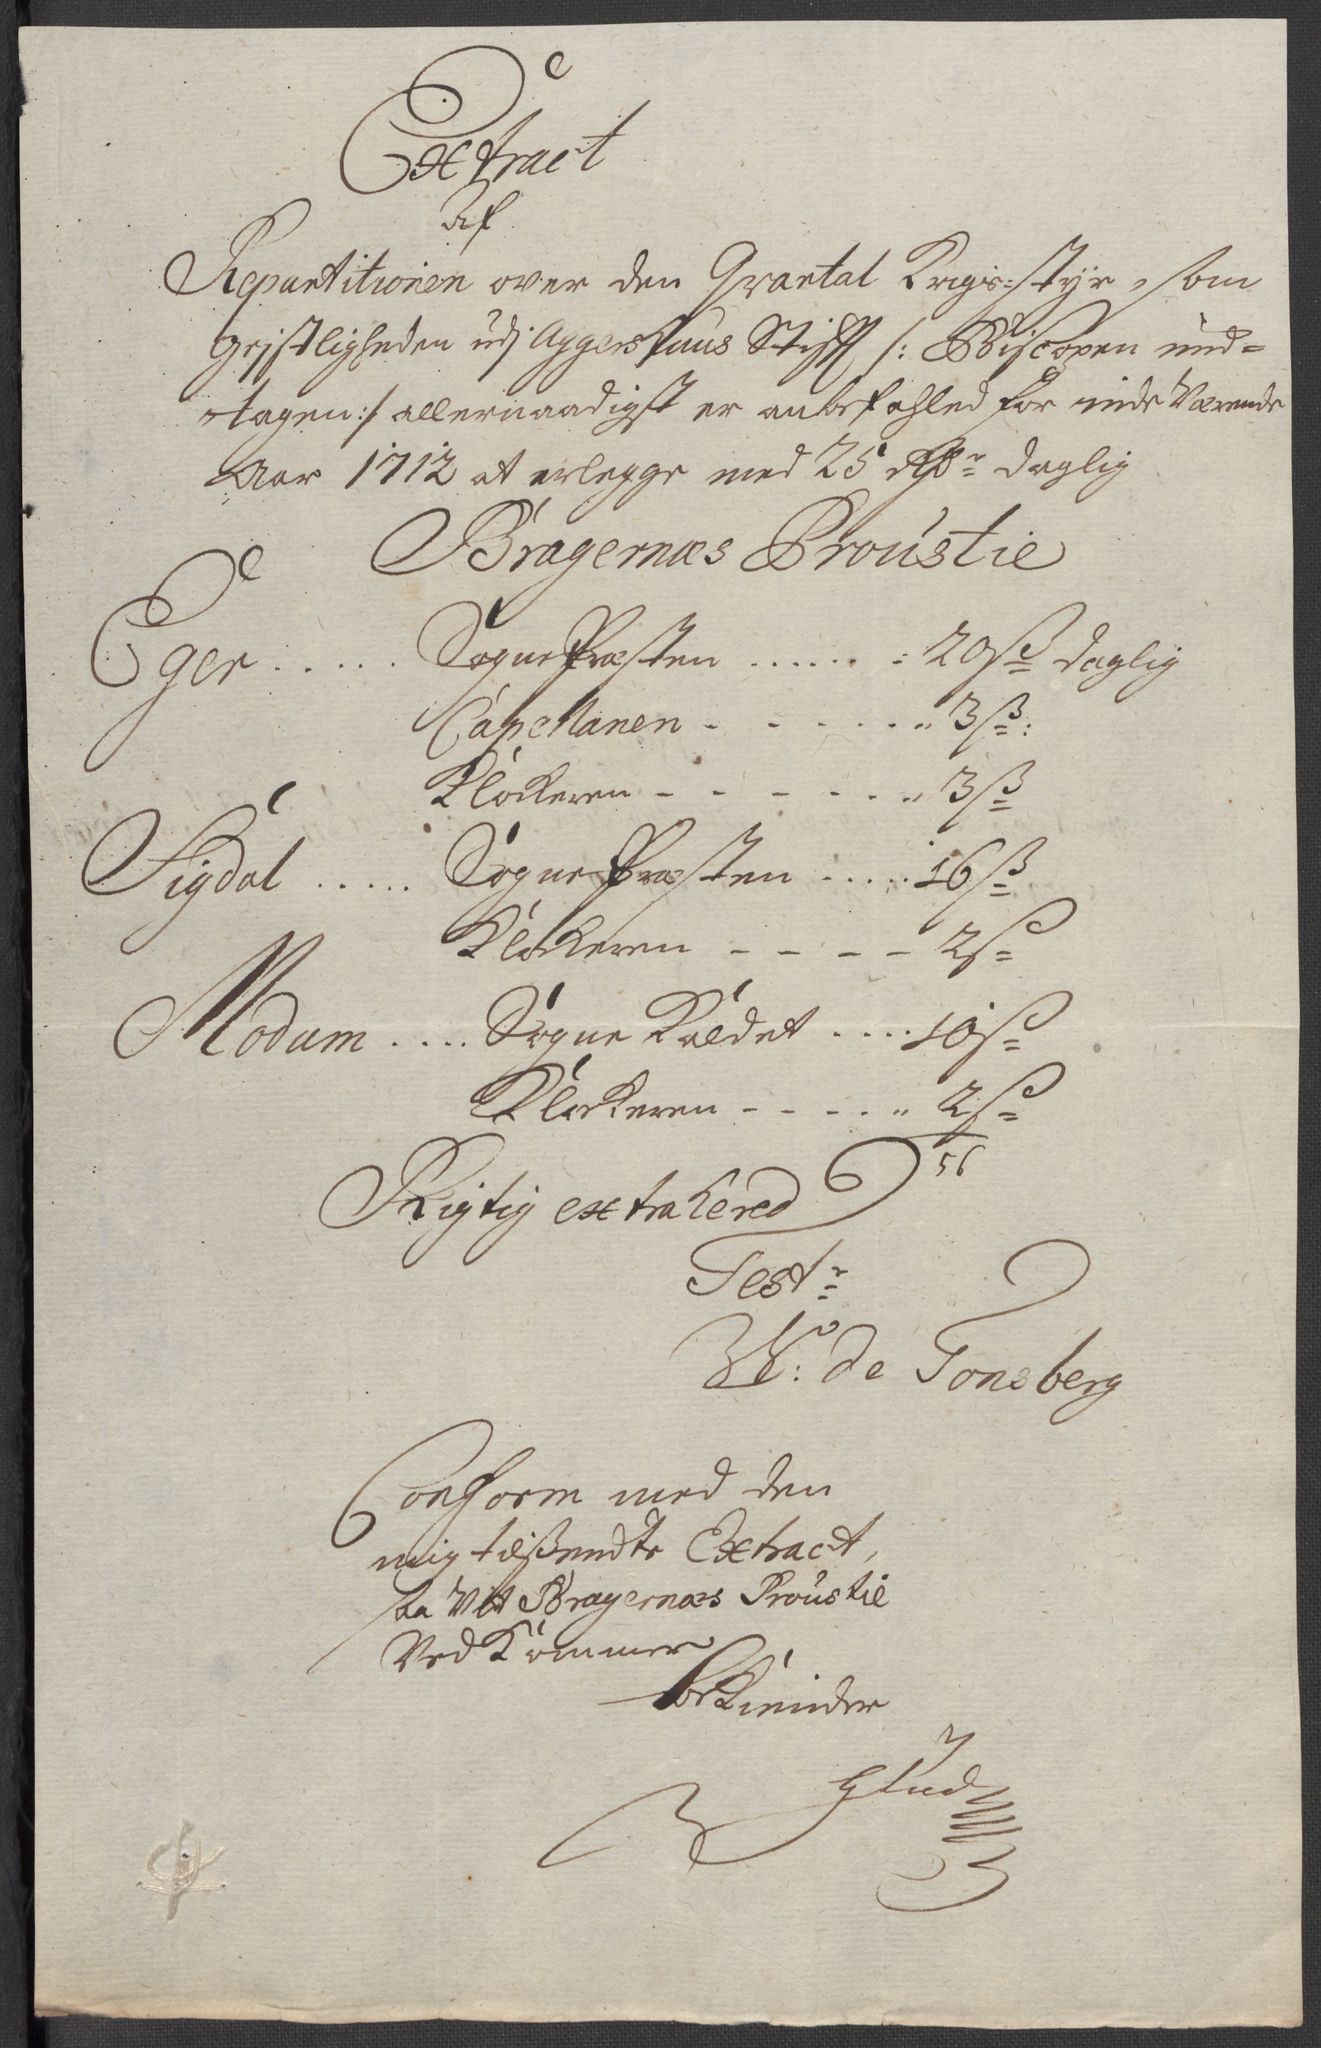 Extract
Af
Repartitionen over den Qvartal Krigs-styr, som
Geistligheden udj Aggershuus Stifft /: Biscopen und-
tagen :/ allernaadigst er anbefahled for inde Værende
Aar 1712 at erlegge med 25 rdr daglig
Bragernæs Proustie
Eger ...... SognePræsten ....... 20 ß daglig
Capellanen - - - - - - „ 3 ß:
Klockeren - - - - - - „ 3 ß
Sigdal ..... SognePræsten ..... 16 ß
Klockeren - - - - 2 ß
Modum .... Sogne Kaldet .... 10 ß
Klockeren - - - - - „ 2 ß
56
Rigtig extrahered
Test:
W: de Tonsberg
Conform med den
mig tilsendte Extract,
saa Vit Bragernæs Proustie
VedKommer
beKiender
Glud